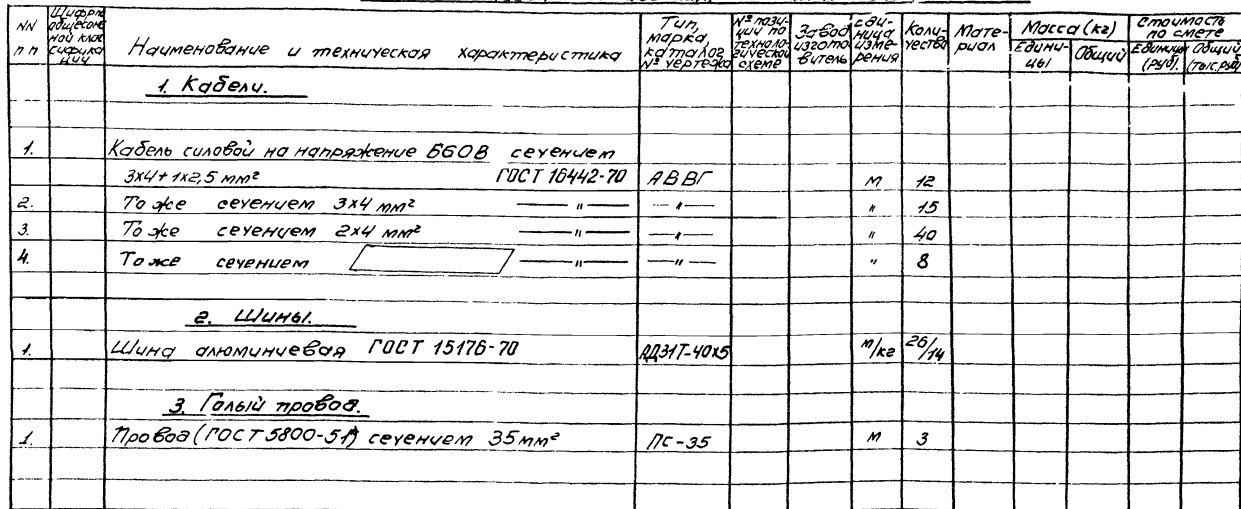 NN п п
Шифры общесоюзной клас
Наименование и техническая характеристика
Тип, марка, каталог № чертежа
№ позиции по технологической схеме
Завод изготовитель
Единица измерения
Количество
Материал
Масса (кг)
Единицы
Общий
Стоимость по смете
Единицы (руб).
Общий (тыс.руб)
1. Кабели.
1. Кабель силовой на напряжение 660В сечением
3х4+1х2,5 мм² ГОСТ 16442-70 АВВГ м 12
2. То же сечением 3х4 мм² —"— —"— " 15
3. То же сечением 2х4 мм² —"— —"— " 40
4. То же сечением —"— —"— " 8
2. Шины.
1. Шина алюминиевая ГОСТ 15176-70 АД31Т-40х5 м/кг 26/14
3. Голый провод.
1. Провод (ГОСТ 5800-51) сечением 35 мм² ПС-35 м 3